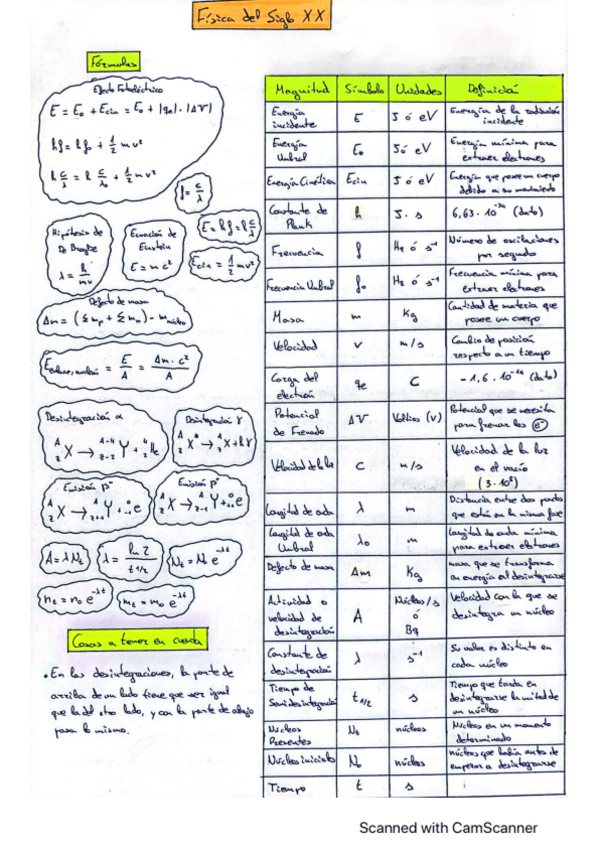 Física del Siglo XX
Fórmulas
Efecto Fotoeléctrico
E = E₀ + Ecin = E₀ + |qe| · |ΔV|
hf = hf₀ + 1/2 mv²
h c/λ = h c/λ₀ + 1/2 mv²
f = c/λ
Hipótesis de
De Broglie
λ = h/mv
Ecuación de
Einstein
E = mc²
E = hf = h c/λ
Ecin = 1/2 mv²
Defecto de masa
Δm = (Σmp + Σmn) - mnúcleo
= E/A = Δm · c²/A
Desintegración α
ᴬ₂X → ᴬ⁻⁴₂₋₂Y + ⁴₂He
Desintegración γ
ᴬ₂X* → ᴬ₂X + hf
Emisión β⁻
ᴬ₂X → ᴬ₂₊₁Y + ⁰₋₁e
Emisión β⁺
ᴬ₂X → ᴬ₂₋₁Y + ⁰₊₁e
A = λNt
λ = ln 2/t1/2
Nt = N₀ e^-λt
nt = n₀ e^-λt
mt = m₀ e^-λt
Cosas a tener en cuenta
• En las desintegraciones, la parte de
arriba de un lado tiene que ser igual
que la del otro lado, y con la parte de abajo
pasa lo mismo.
Magnitud Símbolo Unidades Definición
Energía incidente E J ó eV Energía de la radiación incidente
Energía Umbral E₀ J ó eV Energía mínima para extraer electrones
Energía Cinética Ecin J ó eV Energía que posee un cuerpo debido a su movimiento
Constante de Plank h J · s 6,63 · 10⁻³⁴ (dato)
Frecuencia f Hz ó s⁻¹ Número de oscilaciones por segundo
Frecuencia Umbral f₀ Hz ó s⁻¹ Frecuencia mínima para extraer electrones
Masa m Kg Cantidad de materia que posee un cuerpo
Velocidad v m/s Cambio de posición respecto a un tiempo
Carga del electrón qe C -1,6 · 10⁻¹⁹ (dato)
Potencial de Frenado ΔV Voltios (V) Potencial que se necesita para frenar los e⁻
Velocidad de la luz c m/s Velocidad de la luz en el vacío (3 · 10⁸)
Longitud de onda λ m Distancia entre dos puntos que están en la misma fase
Longitud de onda Umbral λ₀ m Longitud de onda mínima para extraer eletrones
Defecto de masa Δm Kg masa que se transforma en energía al desintegrarse
Actividad o velocidad de desintegración A Núcleo/s ó Bq Velocidad con la que se desintegra un núcleo
Constante de desintegración λ s⁻¹ Su valor es distinto en cada núcleo
Tiempo de Semidesintegración t1/2 s Tiempo que tarda en desintegrarse la mitad de un núcleo
Núcleos Presentes Nt núcleos Núcleos en un momento determinado
Núcleos iniciales N₀ núcleos núcleos que había antes de empezar a desintegrarse
Tiempo t s
Scanned with CamScanner